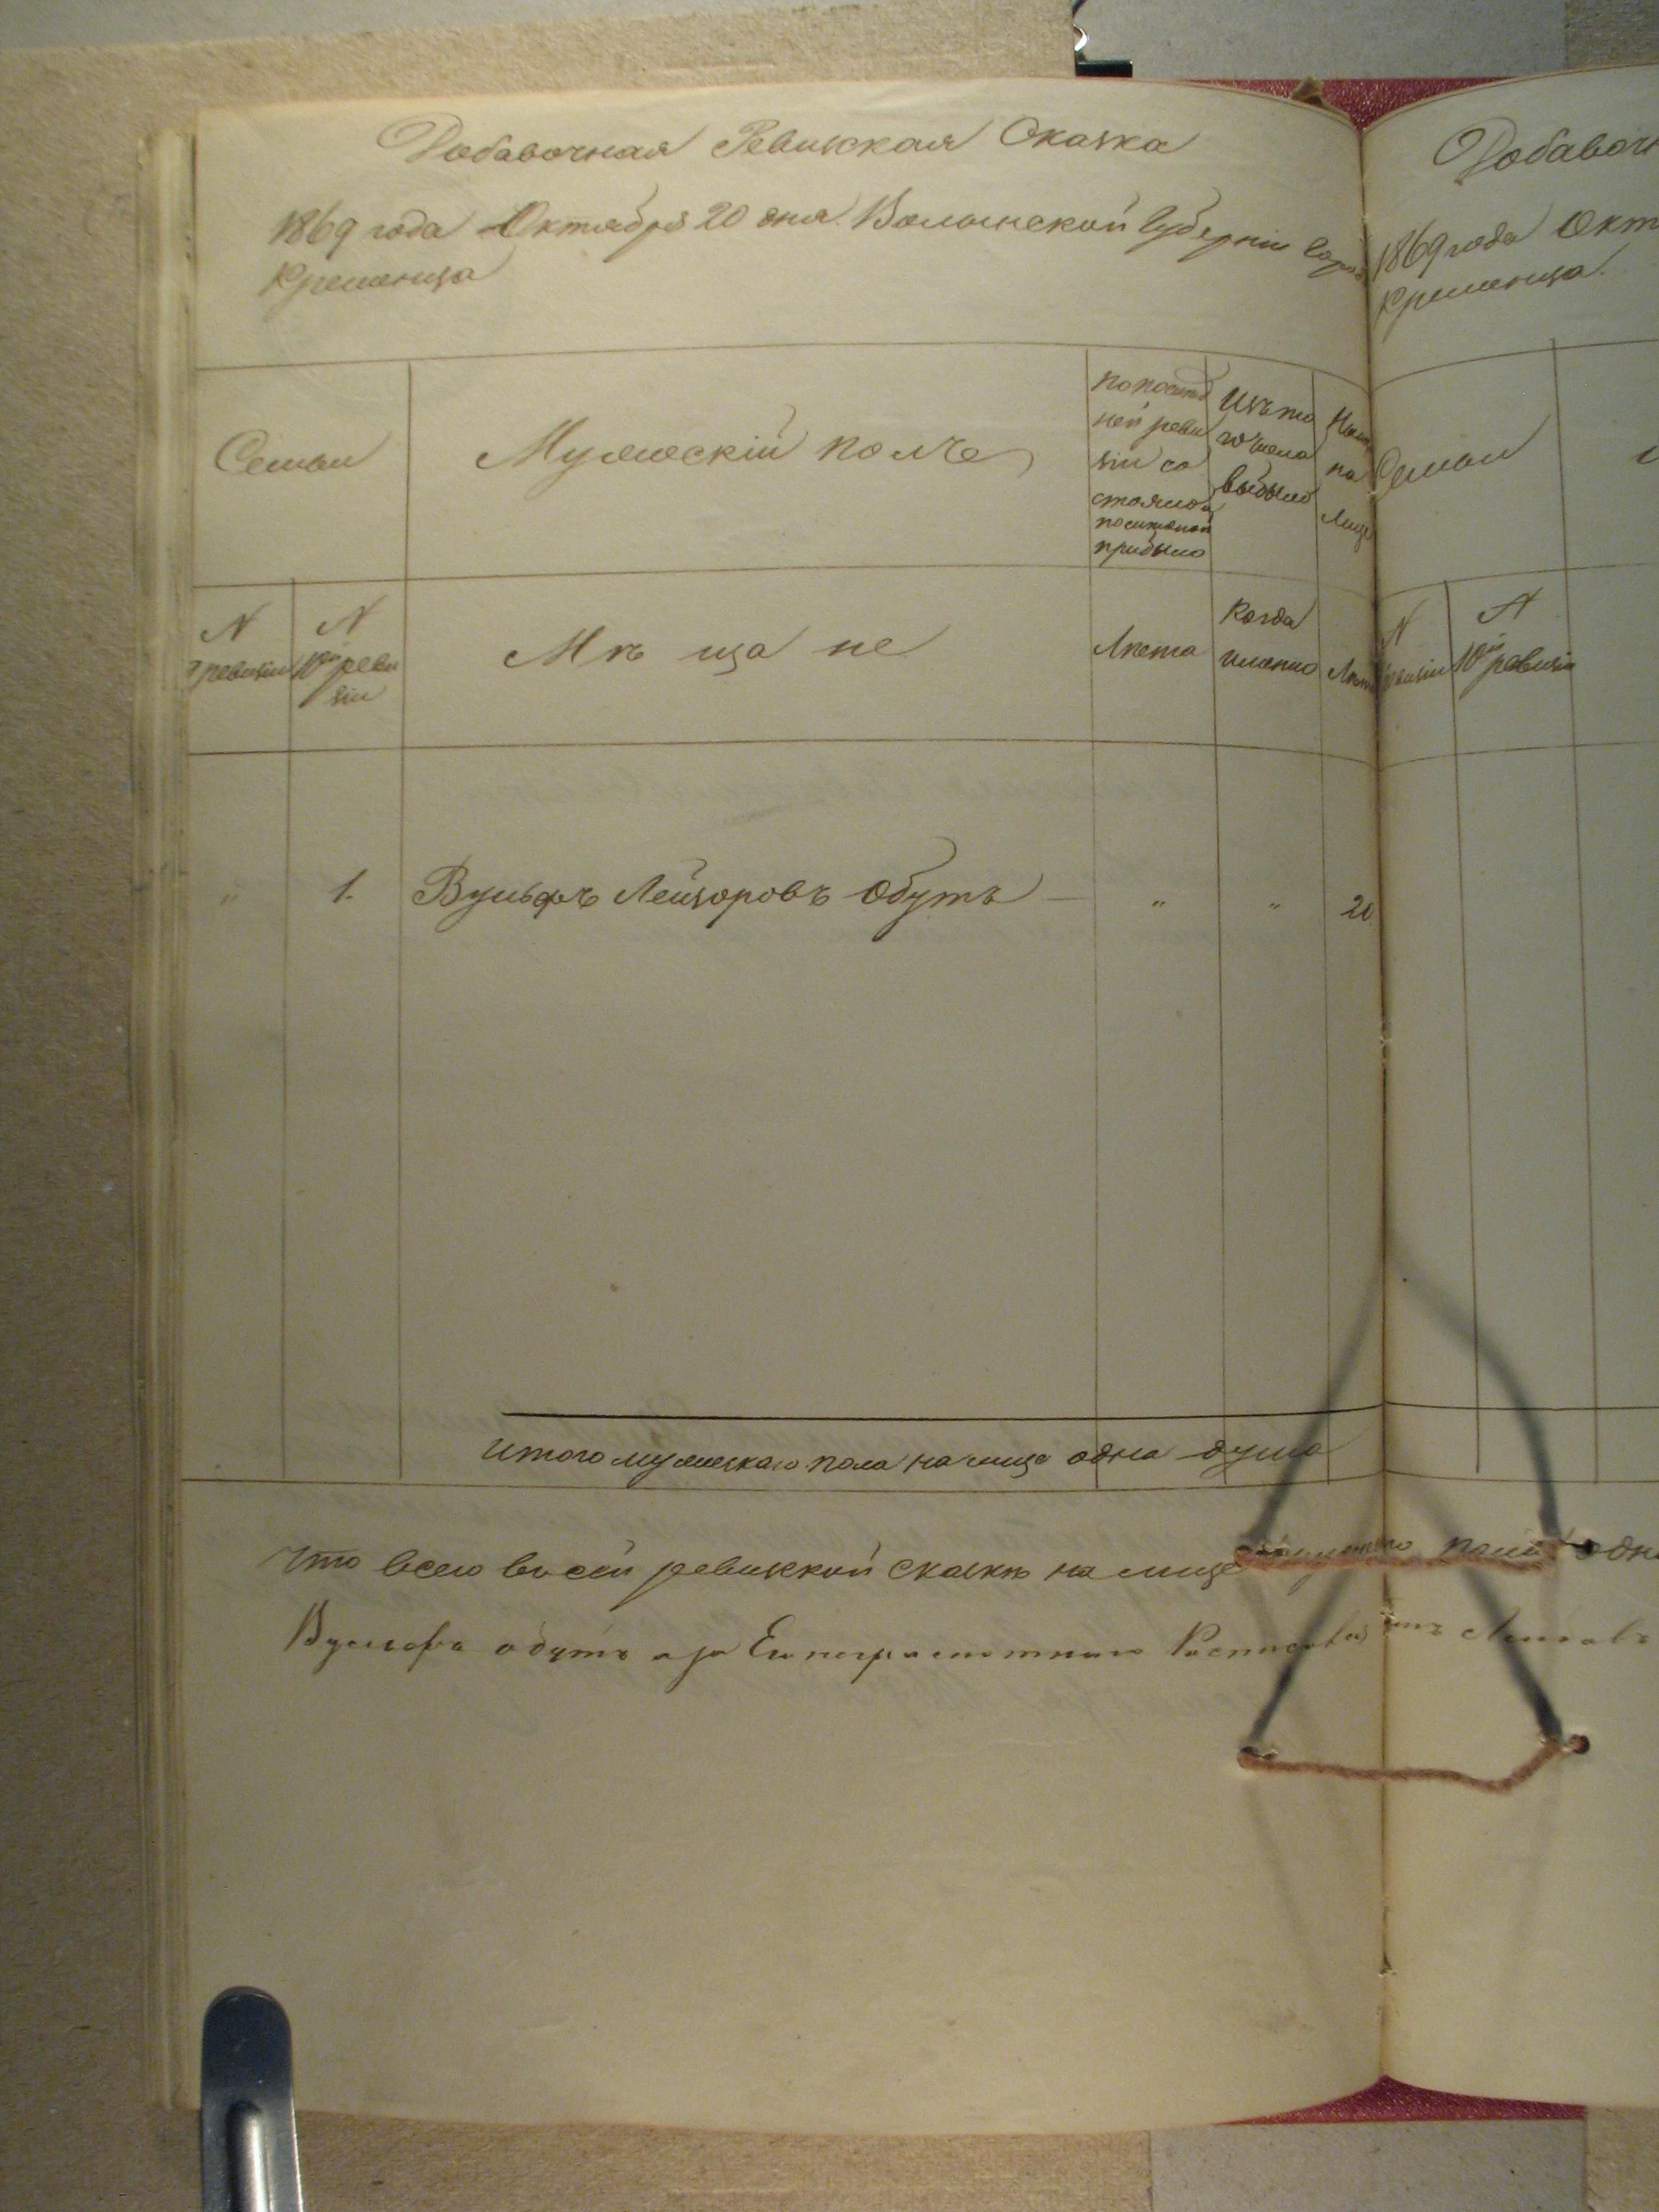 Добавочная Ревизская Сказка
1869 года Октября 20 дня Волынской Губерніи Город
Кременца
Семьи
Мужескій полъ
по послѣд
ней реви
зіи со
стояло и
после оной
прибыло
Изъ то
го числа
выбыло
Ныне
на
лице
N
ревизіи
N
10й реви
зіи
Мѣщане
Лѣта
Когда
именно
Лѣта
" 1. Вульфъ Лейзоровъ Обутъ — " " 20
Итого мужескаго пола на лице одна душа
Что всего в сей ревизской сказкѣ на лице мужескаго пола одна
Вульфа обутъ а за Его неграмотнаго Росписался
Добавоч
1869 года Окт
Кременца.
Семьи
N
ревизіи
N
10й ревизіи